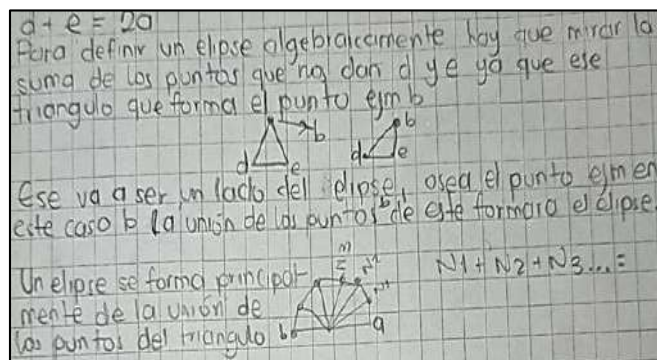 d + e = 20
Para definir un elipse algebraicamente hay que mirar la
suma de los puntos que nos dan d y e ya que ese
triangulo que forma el punto ejm b
b b
d e d e
Ese va a ser un lado del elipse, osea el punto ejm en
este caso b la unión de los puntos b de este formara el elipse.
Un elipse se forma principal-
mente de la unión de
los puntos del triangulo
b a
N1 + N2 + N3 ... =